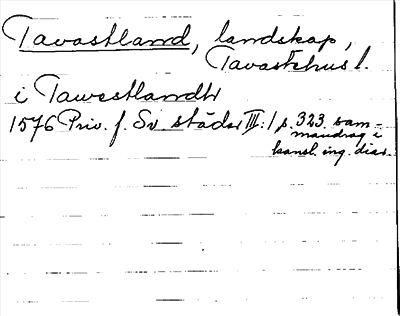 Tavastland, landskap,
Tavastehus l.
i Tawestlandh
1576 Priv. f. Sv städer III:1 p. 323 sam-
mandrag i
kansl. ing. diar.